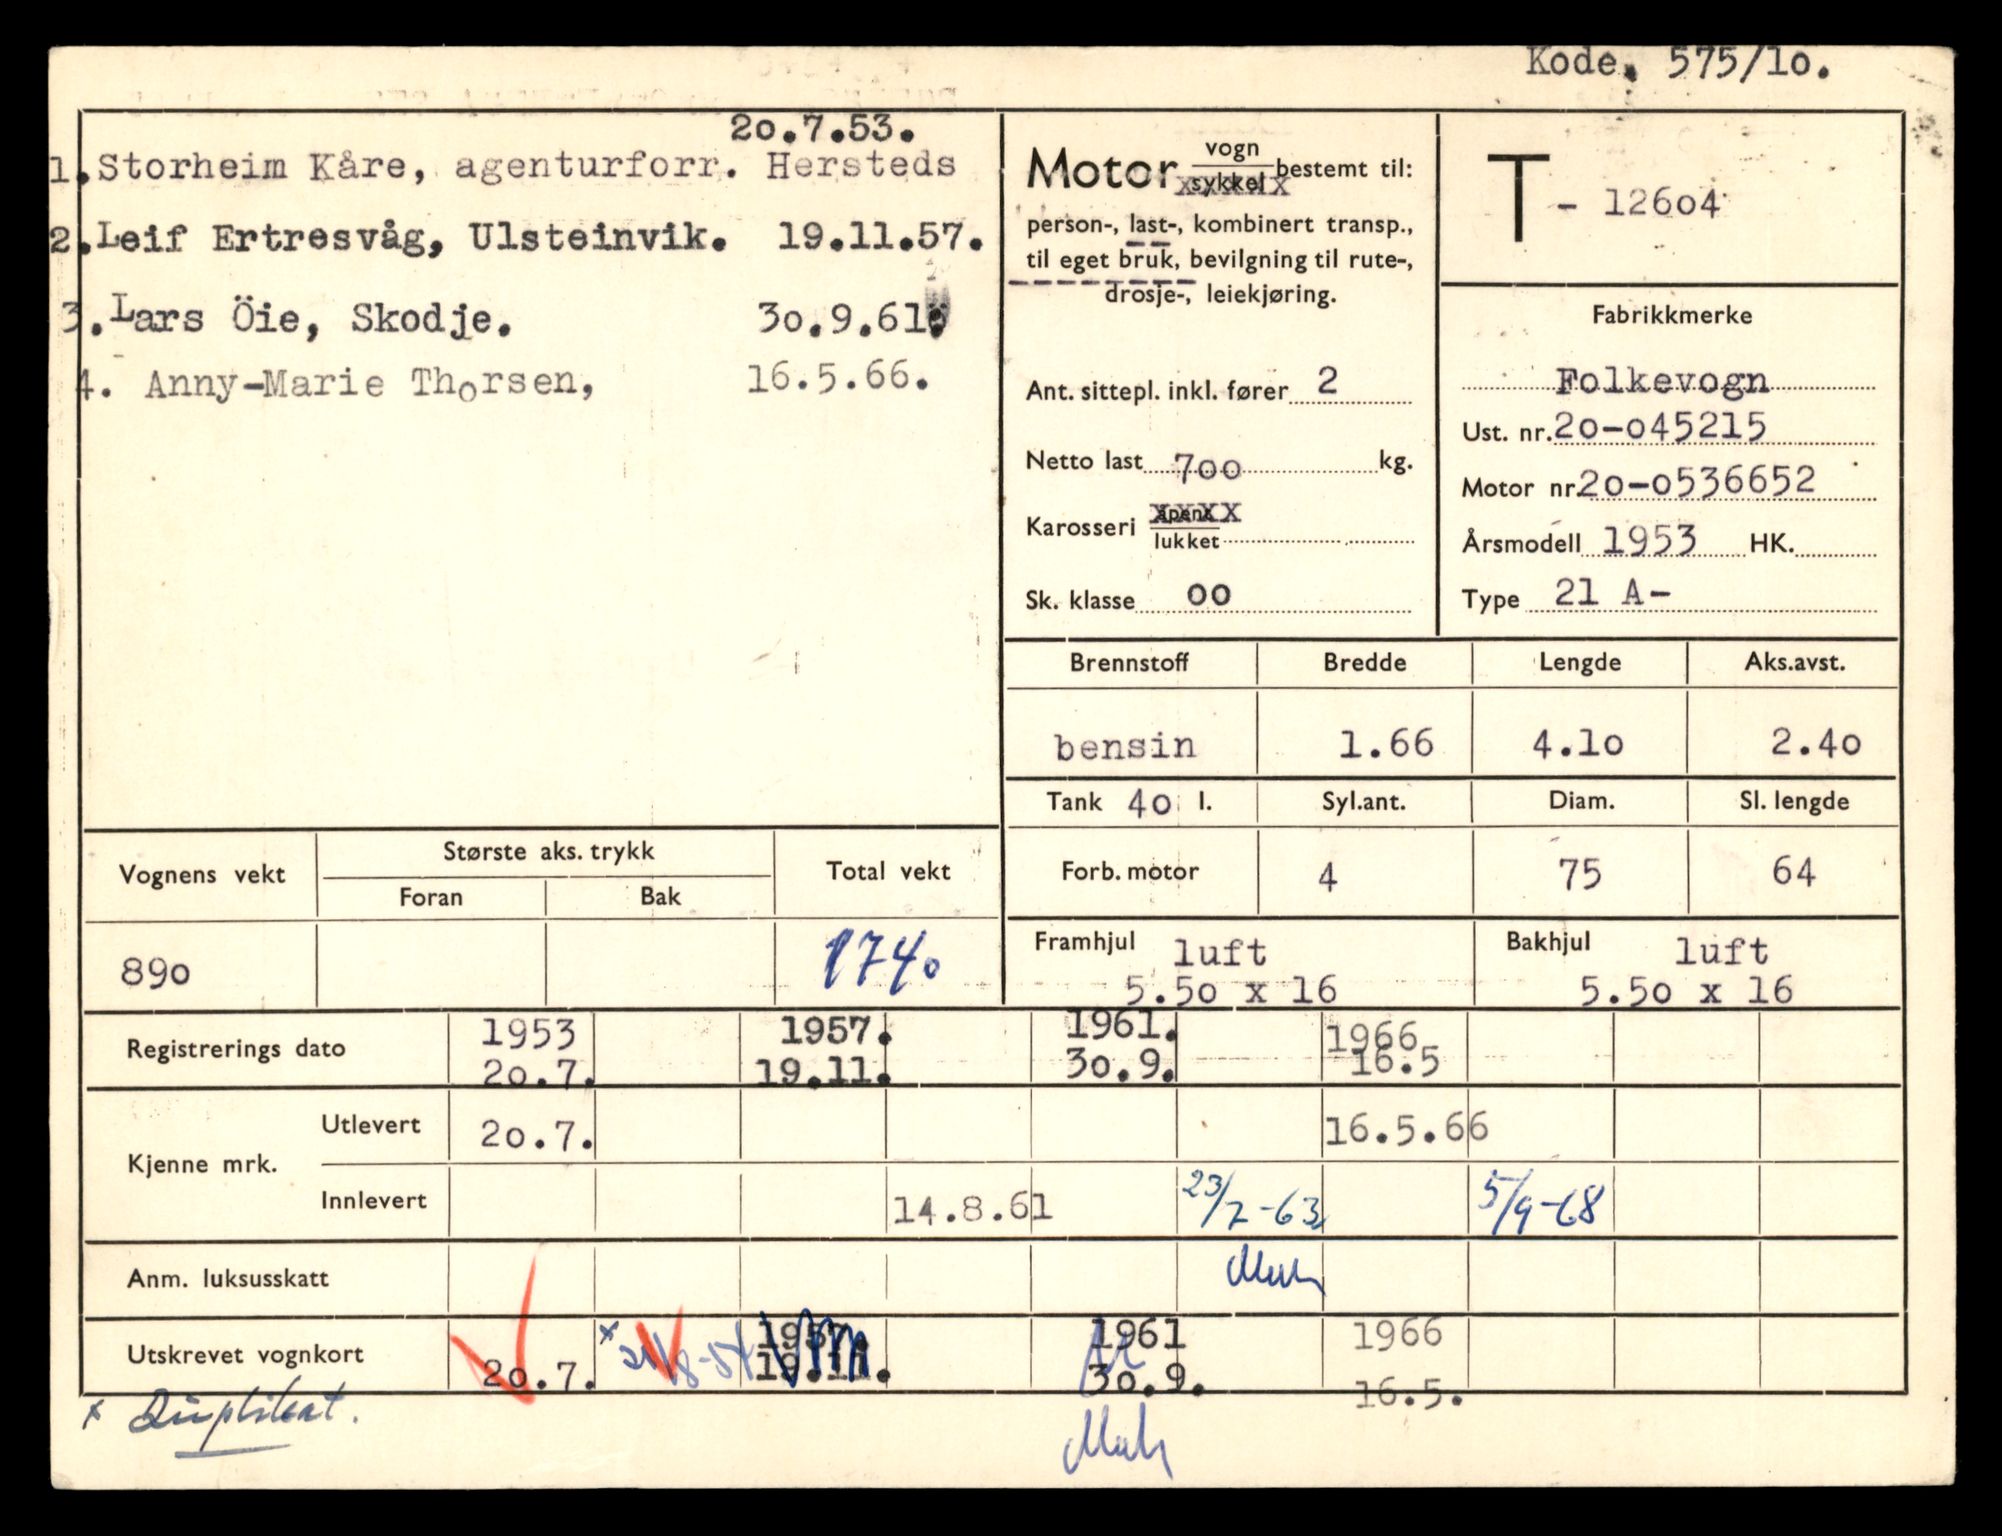 Kode. 575/10.
20.7.53.
1. Storheim Kåre, agenturforr. Hersteds
2. Leif Ertresvåg, Ulsteinvik. 19.11.57.
3. Lars Öie, Skodje. 30.9.61
4. Anny-Marie Thorsen, 16.5.66.
Motor vogn sykkel bestemt til:
person-, last-, kombinert transp.,
til eget bruk, bevilgning til rute-,
drosje-, leiekjøring.
Ant. sittepl. inkl. fører 2
Netto last 700 kg.
Karosseri åpent
lukket
Sk. klasse 00
T - 12604
Fabrikkmerke
Folkevogn
Ust. nr. 20-045215
Motor nr. 20-0536652
Årsmodell 1953 HK.
Type 21 A-
Brennstoff Bredde Lengde Aks.avst.
bensin 1.66 4.10 2.40
Tank 40 l. Syl.ant. Diam. Sl. lengde
Forb. motor 4 75 64
Framhjul luft Bakhjul luft
5.50 x 16 5.50 x 16
Vognens vekt Største aks. trykk Total vekt
Foran Bak
890 1740
Registrerings dato 1953 1957. 1961. 1966
20.7. 19.11. 30.9. 16.5
Kjenne mrk.
Utlevert 20.7. 16.5.66
Innlevert 14.8.61 23/7-63 5/9-68
Anm. luksusskatt
Utskrevet vognkort 1957. 1961 1966
20.7. x 21/8-54 19.11. 30.9. 16.5.
x Duplikat.